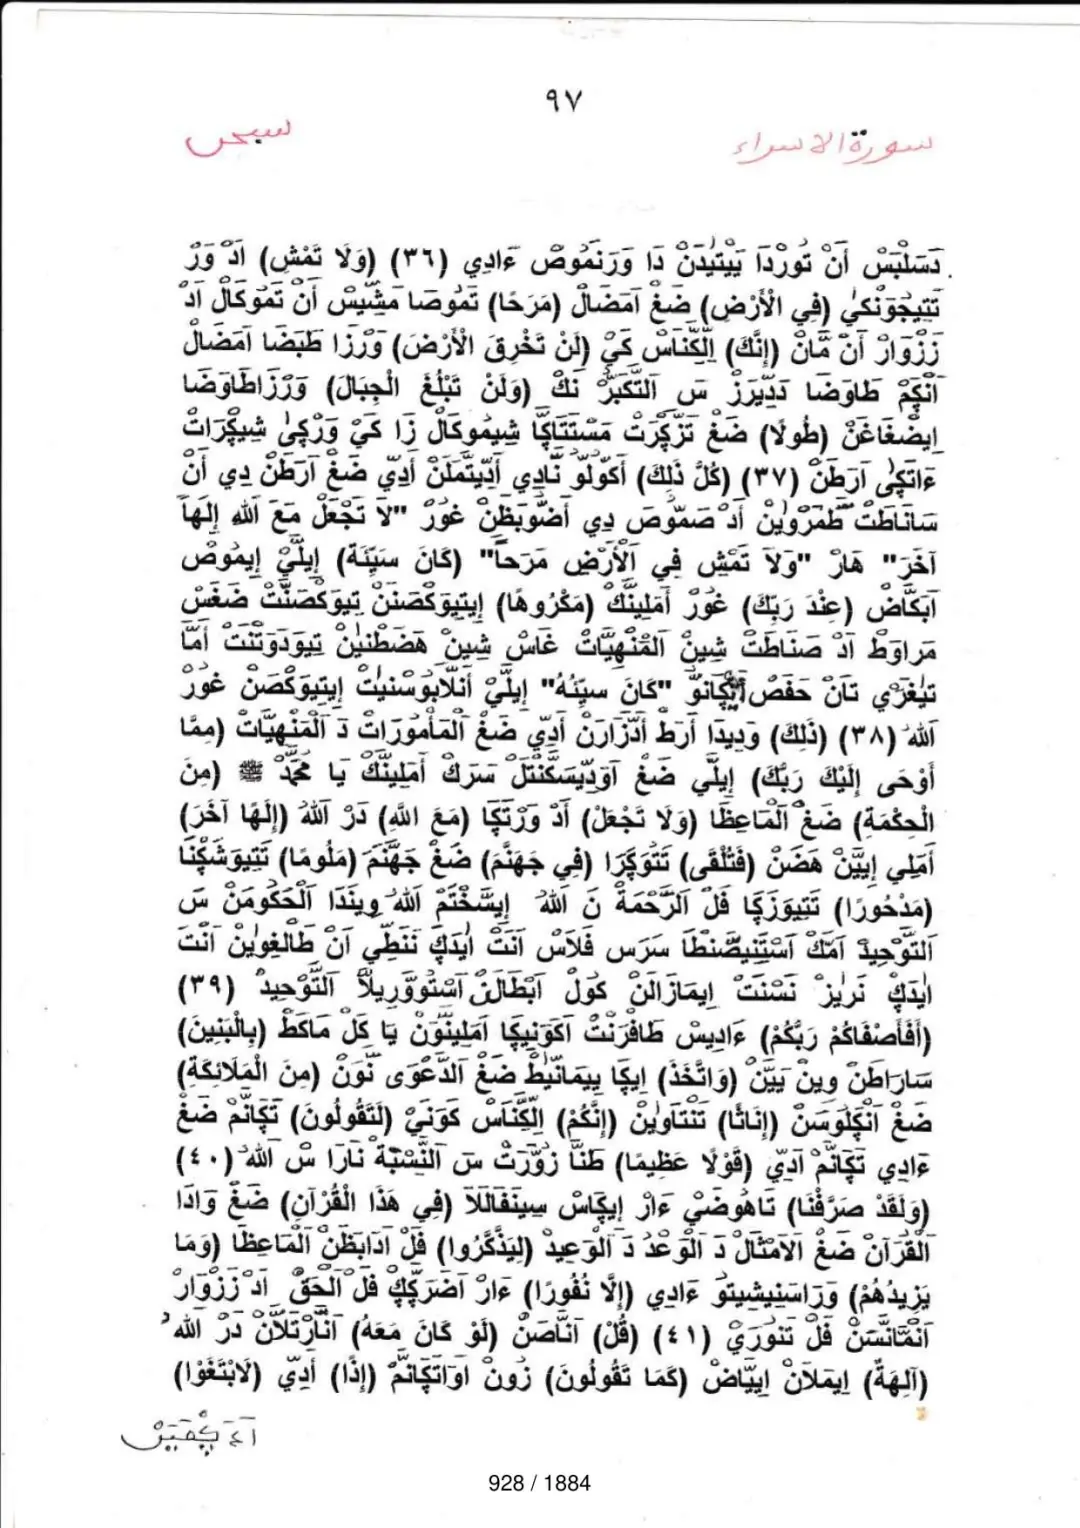 ٩٧
سورة الاسراء
سبحن
دَسَلْيَسْ أَنْ تُورْدَا يَيْتِيدَنْ دَا وَرَنَمُوصْ ءَادِي (٣٦) (وَلَا تَمْشِ) اَدْ وَرْ
(فِي الْأَرْضِ) ضَغْ اَمَضَالْ (مَرَحًا) تَمُوصَا مَشَّيْسْ أَنْ تَمُوكَالْ اَدْ
زَزْوَارْ أَنْ مَّانْ (إِنَّكَ) اِلَّكْنَاسْ كَيْ (لَنْ تَخْرِقَ الْأَرْضَ) وَرْزَا طَبَضَا اَمَضَالْ
اَنْكِمْ طَاوَضَا دَدِّيرَزْ سَ اَلتَّكَبُّرْ نَكْ (وَلَنْ تَبْلُغَ الْجِبَالَ) وَرْزَاطَاوَضَا
اِيضْغَاغَنْ (طُولًا) ضَغْ تَزَّكِرْتْ مَسْتَتَاكَّا شِيمُوكَالْ زَا كَيْ وَرْكِىٰ شِيكِرَاتْ
ءَاتَكِىٰ اَرَطَنْ (٣٧) (كُلُّ ذَلِكَ) أَكُولُو نَّادِي أَدِيتَّمَلَنْ أَدِي ضَغْ اَرَطَنْ دِي أَنْ
سَانَاطَتْ طَمَرْوِينْ اَدْ صَمُّوصَ دِي اَضُّوبَظَنْ غُورْ "لَا تَجْعَلْ مَعَ اللهِ إِلَهاً
آخَرَ" هَارْ "وَلَا تَمْشِ فِي الْأَرْضِ مَرَحاً" (كَانَ سَيِّئَةً) إِيلَيْ إِيمُوصْ
اَبَكَّاضْ (عِنْدَ رَبِّكَ) غُورْ أَمَلِينَكْ (مَكْرُوهًا) إِيتِيوَكْصَنَنْ تِيوَكْصَنَّتْ ضَغْسْ
مَرَاوَطْ اَدْ صَنَاطَتْ شِينْ اَلْمَنْهِيَّاتْ غَاسْ شِينْ هَضَطْنِينْ تِيوَدَوَتْنَتْ اَمَّا
تِيغَرِّي تَانْ حَفَصْ "كَانَ سَيِّئُهُ" إِيلَيْ أَنْلَابُوسْنِيتْ إِيتِيوَكْصَنْ غُورْ
اللهُ (٣٨) (ذَلِكَ) وَدِيدَا أَرَطْ أَدَّزَارَنْ أَدِي ضَغْ اَلْمَأْمُورَاتْ دَ اَلْمَنْهِيَّاتْ (مِمَّا
أَوْحَى إِلَيْكَ رَبُّكَ) إِيلَّي ضَغْ آوَدِيسَكَّنْتَلْ سَرَكْ أَمَلِينَكْ يَا مُحَمَّدْ ﷺ (مِنَ
الْحِكْمَةِ) ضَغْ اَلْمَاعِظَا (وَلَا تَجْعَلْ) اَدْ وَرْتَكَا (مَعَ اللَّهِ) دَرْ اللهُ (إِلَهًا آخَرَ)
أَمَلِي إِيَيَّنْ هَضَنْ (فَتُلْقَى) تَتُوَكَّرَا (فِي جَهَنَّمَ) ضَغْ جَهَنَّمَ (مَلُومًا) تَتِيوَشْكْنَا
(مَدْحُورًا) تَتِيوَزَكَا فَلْ اَلرَّحْمَةْ نَ اللهُ إِيسَّخْتَمْ اللهُ وِينْدَا اَلْحَكُومَنْ سَ
اَلتَّوْحِيدْ اَمَكْ اَسْتَنِيصَّنْطَا سَرَسْ فَلَاسْ اَنْتَ اَيْدَكْ نَنَطِّي أَنْ طَالْغِوِينْ اَنْتَ
اَيْدَكْ نَرِيزْ نَسْنَتْ اِيمَازَالَنْ كُولْ اَبْطَالَنْ اَسْتُووَّرِيلَا اَلتَّوْحِيدْ (٣٩)
(أَفَأَصْفَاكُمْ رَبُّكُمْ) ءَادِيسْ طَافْرَنْتْ اَكَوَنِيكَا اَمَلِينَّوَنْ يَا كَلْ مَاكَطْ (بِالْبَنِينَ)
سَارَاطَنْ وِينْ يَيَّنْ (وَاتَّخَذَ) اِيكَا يِيمَانِيطْ ضَغْ اَلدَّعْوَى نَّوَنْ (مِنَ الْمَلَائِكَةِ)
ضَغْ اَنْكَلُوسَنْ (إِنَاثًا) تَنْتَاوِينْ (إِنَّكُمْ) اِلَّكْنَاسْ كَوَنَيْ (لَتَقُولُونَ) تَكَانَّمْ ضَغْ
ءَادِي تَكَانَّمْ اَدِيّ (قَوْلًا عَظِيمًا) طَنَّا زُوَّرَتْ سَ اَلنِّسْبَةْ نَارَا سْ اللهُ (٤٠)
(وَلَقَدْ صَرَّفْنَا) تَاهُوضَيْ ءَارْ اِيكَاسْ سِينَفَالَلَا (فِي هَذَا الْقُرْآنِ) ضَغْ وَادَا
اَلْقُرْآنْ ضَغْ اَلَامْثَالْ دَ اَلْوَعْدْ دَ اَلْوَعِيدْ (لِيَذَّكَّرُوا) فَلْ اَدَابَظَنْ اَلْمَاعِظَا (وَمَا
يَزِيدُهُمْ) وَرَاسَنِيشِيتُو ءَادِي (إِلَّا نُفُورًا) ءَارْ اَضَرَكَّكْ فَلْ اَلْحَقّْ اَدْ زَزْوَارْ
اَنْمَّانَسَنْ فَلْ تَنُورَيْ (٤١) (قُلْ) اَنَّاصَنْ (لَوْ كَانَ مَعَهُ) اَنَّارْتَلَّانْ دَرْ اللهُ
(آلِهَةٌ) اِيمَلَانْ اِيَيَّاضْ (كَمَا تَقُولُونَ) زُونْ اَوَاتَكَانَّمْ (إِذًا) أَدِيّ (لَابْتَغَوْا)
928 / 1884